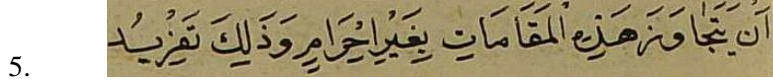 5. اَنْ يَتَجَاوَزَ هَذِهِ الْمَقَامَاتِ بِغَيْرِ اِحْرَامٍ وَذَلِكَ تَفْرِيدُ